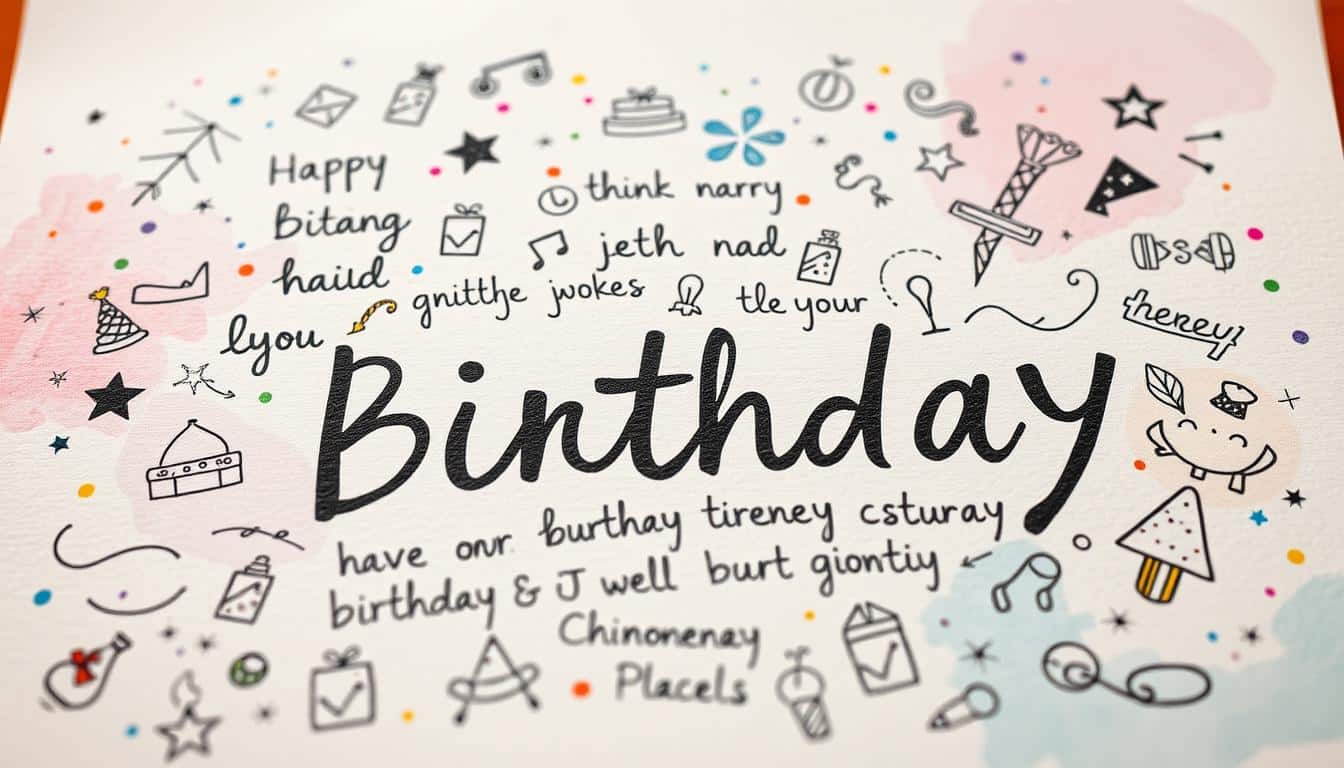 Happy
Bitang
haiid
lyou
think narry
jeth nad
gnitthe jwokes
tle your
Birthday
have onr. burthay tireney csturay
birthday & J well burt giontiy
Chinonenay
Placels
herey